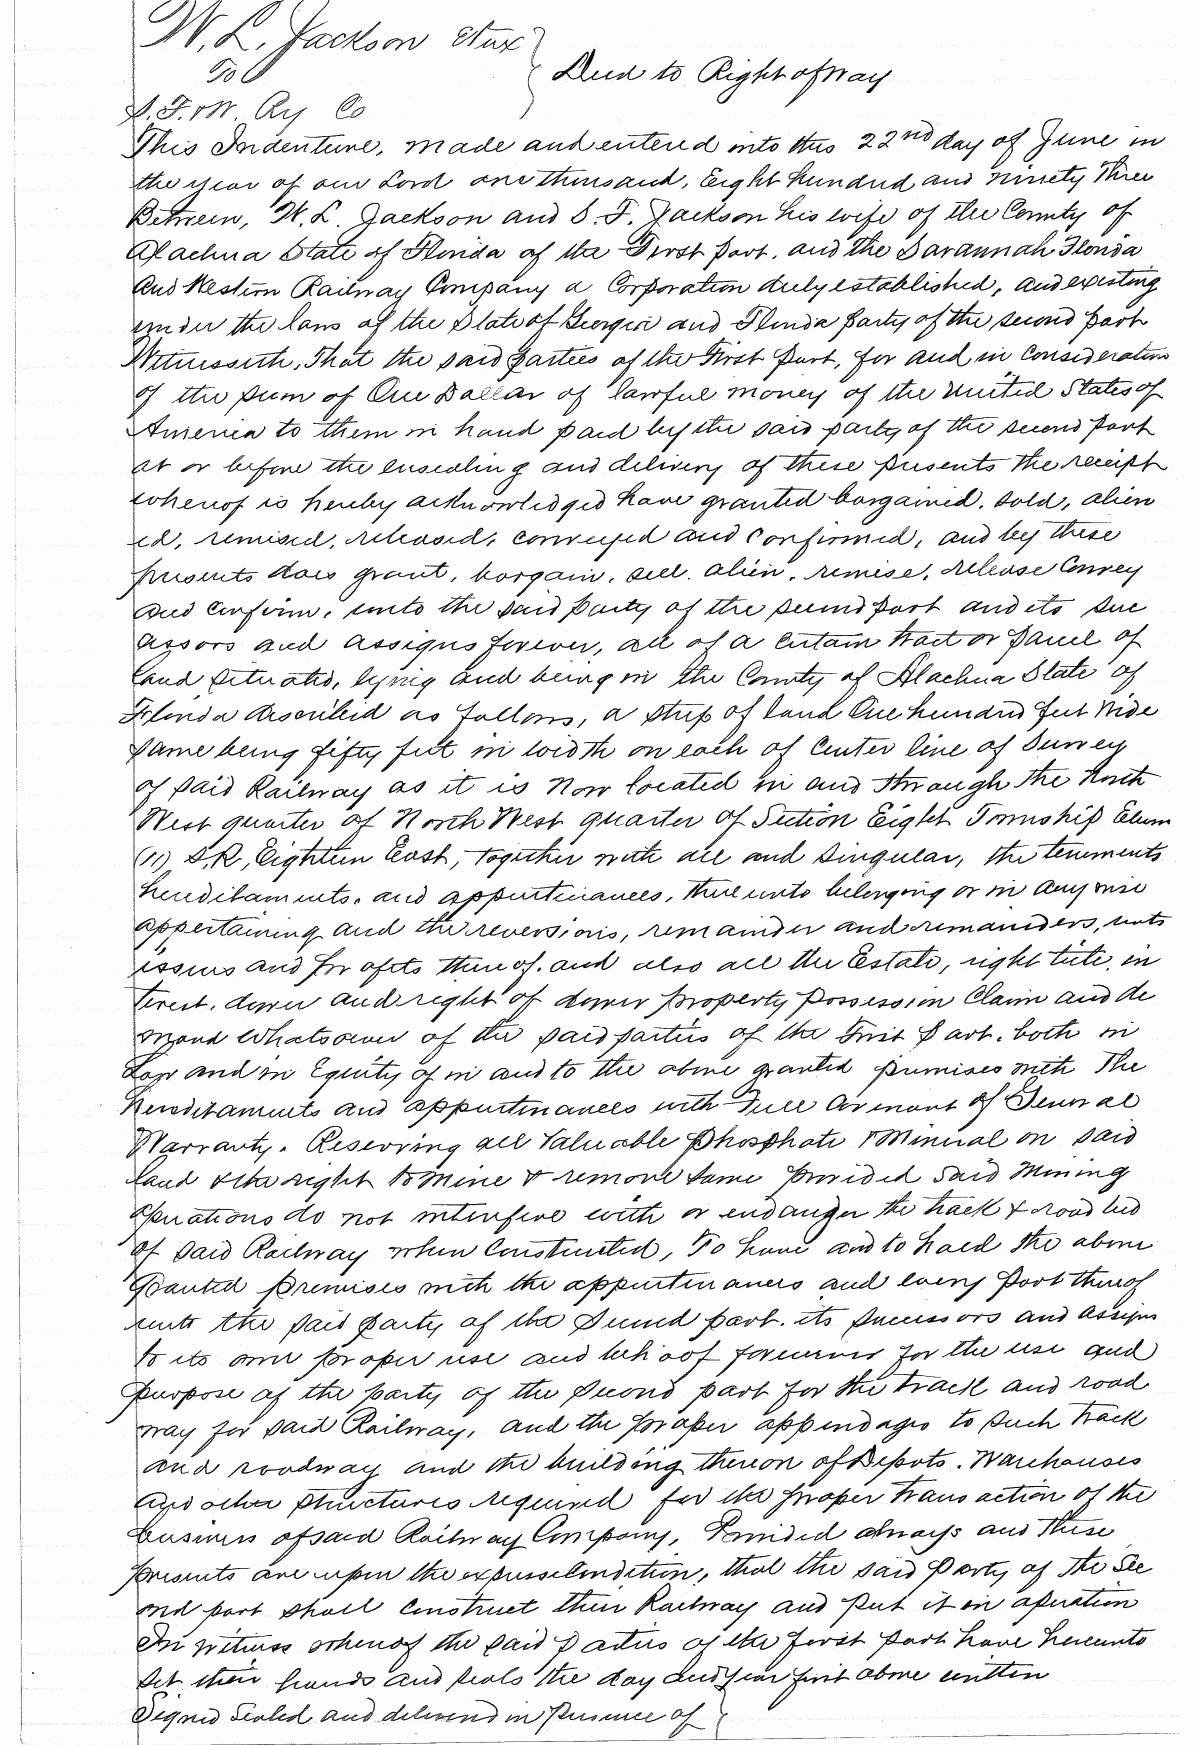 W. L. Jackson Etux
To
Deed to Right of way
S. F. & W. Ry Co
This Indenture, made and entered into this 22nd day of June in
the year of our Lord one thousand, Eight hundred and ninety three
Between, W. L. Jackson and S. F. Jackson his wife of the County of
Alachua State of Florida of the First part, and the Savannah Florida
and Western Railway Company a Corporation duly established, and existing
under the laws of the State of Georgia and Florida party of the second part
Witnesseth, That the said partees of the First part, for and in consideration
of the sum of One Dollar of lawful money of the United States of
America to them in hand paid by the said party of the second part
at or before the ensealing and delivery of these presents the receipt
whereof is hereby acknowledged have granted bargained, sold, alien
ed, remised, released, conveyed and confirmed, and by these
presents does grant, bargain, sell, alien, remise, release Convey
and confirm, unto the said party of the second part and its suc
assors and assigns forever, all of a certain tract or parcel of
land situated, lying and being in the County of Alachua State of
Florida described as follows, a strip of land One hundred feet wide
same being fifty feet in width on each of center line of Survey
of said Railway as it is now located in and through the North
West quarter of North West quarter of Section Eight Township Eleven
(11) S.R, Eighteen East, together with all and singular, the tenements
hereditaments, and appurtenances, thereunto belonging or in any wise
appertaining and the reversions, remainder and remainders, rents
issues and profits thereof, and also all the Estate, right title, in
terest, dower and right of dower property possession Claim and de
mand whatsoever of the said parties of the First part, both in
Law and in Equity of in and to the above granted premises with the
hereditaments and appurtenances with Full Covenant of General
Warranty. Reserving all Valuable phosphate & Mineral on said
land & the right to mine & remove same provided said Mining
opperations do not interfere with or endanger the track & road bed
of said Railway when constructed, To have and to hold the above
granted premises with the appurtenances and every part thereof
unto the said party of the Second part, its successors and assigns
to its own proper use and behoof forever for the use and
purpose of the party of the second part for the track and road
way for said Railway, and the proper appendages to such track
and roadway and the building thereon of Depots, Warehouses
and other structures required for the proper transaction of the
business of said Railway Company, Provided always and these
presents are upon the express Condition, that the said Party of the Sec
ond part shall construct their Railway and put it in operation
In witness whereof the said parties of the first part have hereunto
set their hands and seals the day and year first above written
Signed Sealed and delivered in presence of